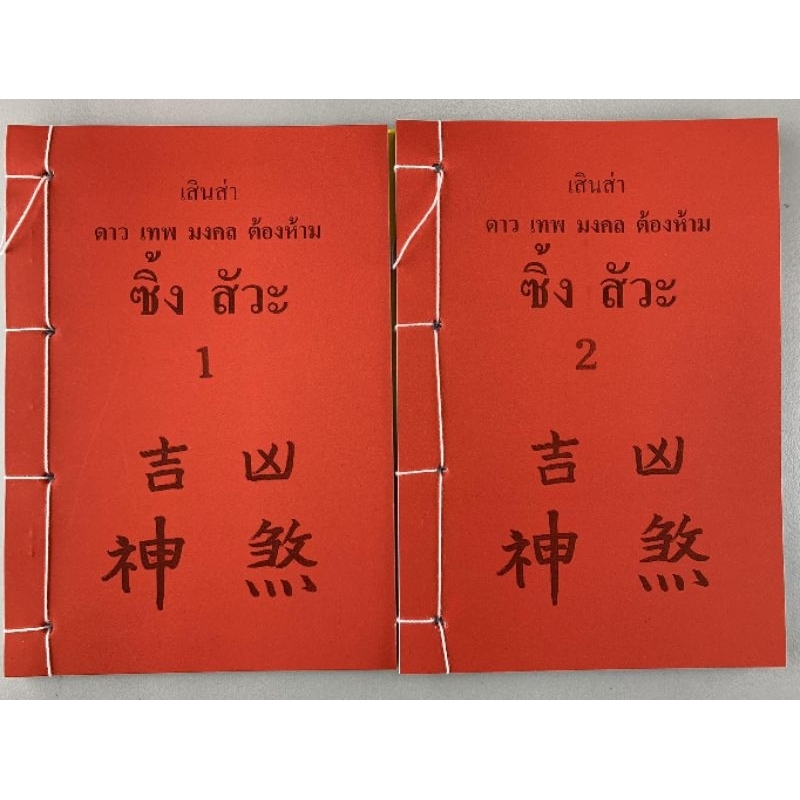 เสินส่า
ดาว เทพ มงคล ต้องห้าม
ซิ้ง สัวะ
1
吉 凶
神 煞
เสินส่า
ดาว เทพ มงคล ต้องห้าม
ซิ้ง สัวะ
2
吉 凶
神 煞